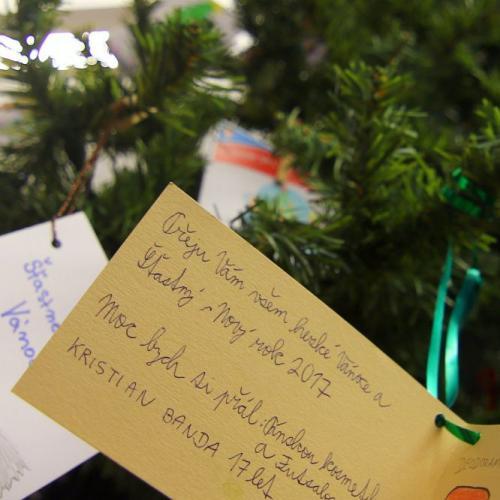 Přeju Vám všem hezké Vánoce a
Šťastný Nový rok 2017
Moc bych si přál: Vindron kosmetik
a Futsalo
KRISTIAN BANDA 17 let
Šťastné
Váno